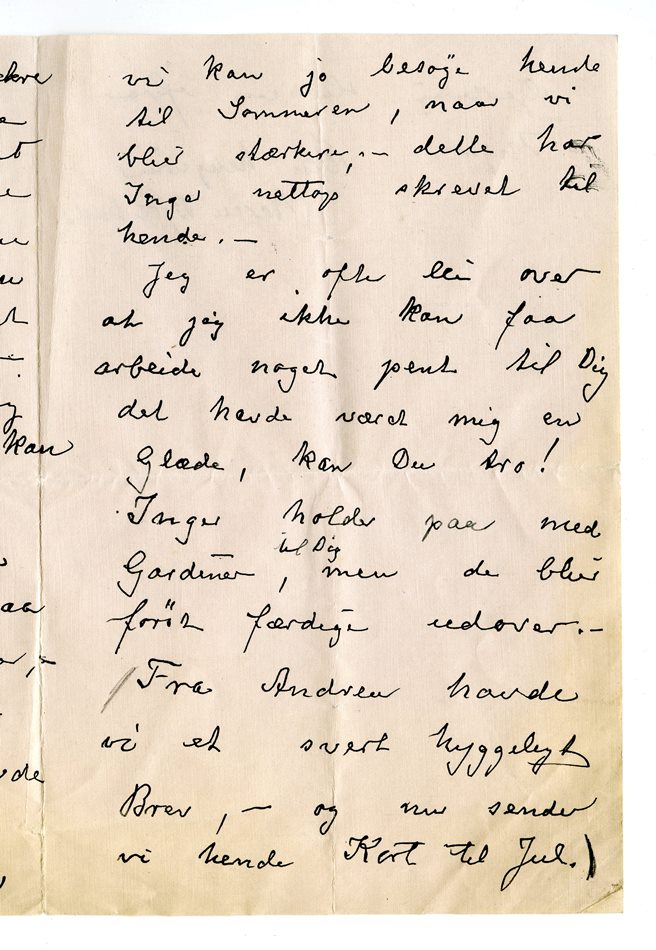 vi kan jo besøge hende
til Sommeren, naar vi
blir stærkere, – dette har
Inger nettop skrevet til
hende. –
Jeg er ofte lei over
at jeg ikke kan faa
arbeide noget pent til Dig
det havde været mig en
Glæde, kan Du tro!
Inger holder paa med
til Dig
Gardiner, men de blir
først færdige udover. –
(Fra Andrea havde
vi et svert hyggeligt
Brev, – og nu sender
vi hende Kort til Jul.)
kan